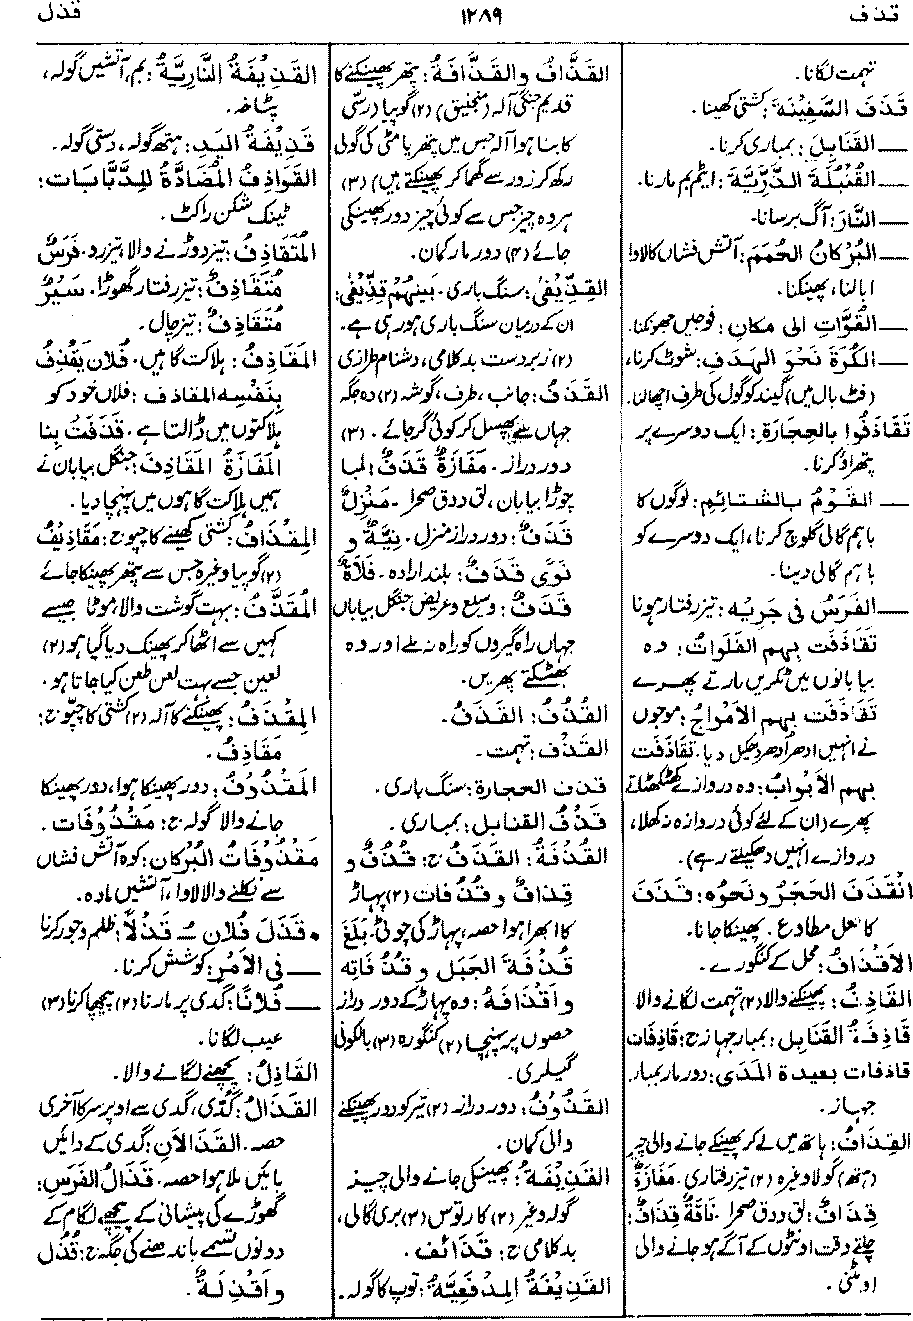 قذف
۱۲۸۹
قذل
تہمت لگانا۔
قَذَفَ السَّفِينَةَ: کشتی کھینا۔
— القَنَابِلَ: بمباری کرنا۔
— القُنْبُلَةَ الذَّرِّيَّةَ: ایٹم بم مارنا۔
— النَّارَ: آگ برسانا۔
— البُرْكَانُ الحُمَمَ: آتش فشاں کا لاوا
ابالنا، پھینکنا۔
— القُوَّاتِ الى مكان: فوجیں جھونکنا۔
— الكُرَةَ نَحْوَ الهَدَفِ: شوٹ کرنا،
(فٹ بال میں) گیند کو گول کی طرف اچھالنا۔
تَقَاذَفُوا بالحِجَارَةِ: ایک دوسرے پر
پتھراؤ کرنا۔
— القَوْمُ بالشَّتائِمِ: لوگوں کا
باہم گالی گلوچ کرنا، ایک دوسرے کو
باہم گالی دینا۔
— الفَرَسُ فى جَرْيِه: تیز رفتار ہونا
تَقَاذَفَت بِهِم الفَلَوَاتُ: وہ
بیابانوں میں ٹکریں مارتے پھرے
تَقَاذَفَت بِهِم الأَمْوَاجُ: موجوں
نے انہیں ادھر اُدھر دھکیل دیا۔ تَقَاذَفَت
بِهِم الأَبْوَابُ: وہ دروازے کھٹکھٹاتے
پھرے (ان کے لئے کوئی دروازہ نہ کھلا،
دروازے انہیں دھکیلتے رہے)۔
انْقَذَفَ الحَجَرُ ونَحْوُه: قَذَفَ
کا فعل مطاوع۔ پھینکا جانا۔
الأَقْذَافُ: محل کے کنگورے۔
القَاذِفُ: پھینکنے والا (۲) تہمت لگانے والا
قَاذِفَةُ القَنَابِلِ: بمبار جہاز ج: قَاذِفَات
قاذفات بعيدة المَدَى: دور مار بمبار
جہاز۔
القِذَافُ: ہاتھ میں لے کر پھینکے جانے والی چیز
(پتھر) گولا وغیرہ (۲) تیز رفتاری۔ مَفَازَةٌ
قِذَافٌ: لق و دق صحرا۔ نَاقَةٌ قِذَافٌ:
چلتے وقت اونٹوں کے آگے ہو جانے والی
اونٹنی۔
القَذَّافُ والقَذَّافَةُ: پتھر پھینکنے کا
قدیم جنگی آلہ (منجنیق) (۲) گوپیا (رسّی
کا بنا ہوا آلہ جس میں پتھر یا مٹی کی گولی
رکھ کر زور سے گھما کر پھینکتے ہیں) (۳)
ہر وہ چیز جس سے کوئی چیز دور پھینکی
جائے (۴) دور مار کمان۔
القِذِّيفَىٰ: سنگ باری۔ بَيْنَهُمْ قِذِّيفَىٰ:
ان کے درمیان سنگ باری ہو رہی ہے۔
(۲) زبردست بدکلامی، دشنام طرازی
القَذَفُ: جانب، طرف، گوشہ (۲) وہ جگہ
جہاں سے پھسل کر کوئی گر جائے۔ (۳)
دور دراز۔ مَفَازَةٌ قَذَفٌ: لمبا
چوڑا بیابان، لق و دق صحرا۔ مَنْزِلٌ
قَذَفٌ: دور دراز منزل۔ نِيَّةٌ و
نَوًى قَذَفٌ: بلند ارادہ۔ فَلَاةٌ
قَذَفٌ: وسیع و عریض جنگل بیاباں
جہاں راہ گیروں کو راہ نہ ملے اور وہ
بھٹکتے پھریں۔
القُذُفُ: القَذَفُ۔
القَذْفُ: تہمت۔
قذف الحجارة: سنگ باری۔
قَذْفُ القنابل: بمباری۔
القُذْفَةُ: القَذَفُ ج: قُذَفٌ و
قِذَافٌ و قُذُفَات (۲) پہاڑ
کا ابھرا ہوا حصہ، پہاڑ کی چوٹی۔ بَلَغَ
قُذْفَةَ الجَبَلِ و قُذُفَاتِه
و أَقْذَافَهُ: وہ پہاڑ کے دور دراز
حصوں پر پہنچا (۲) کنگورہ (۳) بالکونی
گیلری۔
القَذُوفُ: دور دراز (۲) تیر کو دور پھینکنے
والی کمان۔
القَذِيفَةُ: پھینکی جانے والی چیز
گولہ وغیرہ (۲) کارتوس (۳) بری گالی،
بدکلامی ج: قَذَائف۔
القَذِيفَةُ المِدْفَعِيَّةُ: توپ کا گولہ۔
القَذِيفَةُ النَّارِيَّةُ: بم، آتشیں گولہ،
پٹاخہ۔
قَذِيفَةُ اليَدِ: ہتھ گولہ، دستی گولہ۔
القَوَاذِفُ المُضَادَّةُ لِلدَّبَّابات:
ٹینک شکن راکٹ۔
المُتَقَاذِفُ: تیز دوڑنے والا، تیز رو۔ فَرَسٌ
مُتَقَاذِفٌ: تیز رفتار گھوڑا۔ سَيْرٌ
مُتَقَاذِفٌ: تیز چال۔
المَقَاذِفُ: ہلاکت گاہیں۔ فُلَان يَقْذِفُ
بِنَفْسِه المقاذف: فلاں خود کو
ہلاکتوں میں ڈالتا ہے۔ قَذَفَتْ بِنا
المَفَازَةُ المَقَاذِفَ: جنگل بیابان نے
ہمیں ہلاکت گاہوں میں پہنچا دیا۔
المِقْذَافُ: کشتی کھینے کا چپو ج: مَقَاذِيفُ
(۲) گوپیا وغیرہ جس سے پتھر پھینکا جائے
المُقَذَّفُ: بہت گوشت والا، موٹا جیسے
کہیں سے اٹھا کر پھینک دیا گیا ہو (۲)
لعین جسے بہت لعن طعن کیا جاتا ہو۔
المِقْذَفُ: پھینکنے کا آلہ (۲) کشتی کا چپو ج:
مَقَاذِفُ۔
المَقْذُوفُ: دور پھینکا ہوا، دور پھینکا
جانے والا گولہ ج: مَقْذُوفَات۔
مَقْذُوفَاتُ البُرْكَانِ: کوہ آتش فشاں
سے نکلنے والا لاوا، آتشیں مادہ۔
• قَذَلَ فُلَان ـُ قَذْلًا: ظلم و جور کرنا
— فى الأمرِ: کوشش کرنا۔
— فُلَانًا: گدی پر مارنا (۲) پیچھا کرنا (۳)
عیب لگانا۔
القَاذِلُ: پچھنے لگانے والا۔
القَذَالُ: گُدّی، گدی سے اوپر سر کا آخری
حصہ۔ القَذَالَانِ: گدی کے دائیں
بائیں ملا ہوا حصہ۔ قَذَالُ الفَرَسِ:
گھوڑے کی پیشانی کے پیچھے، لگام کے
دونوں تسمے باندھنے کی جگہ ج: قُذُل
وأَقْذِلَةٌ۔